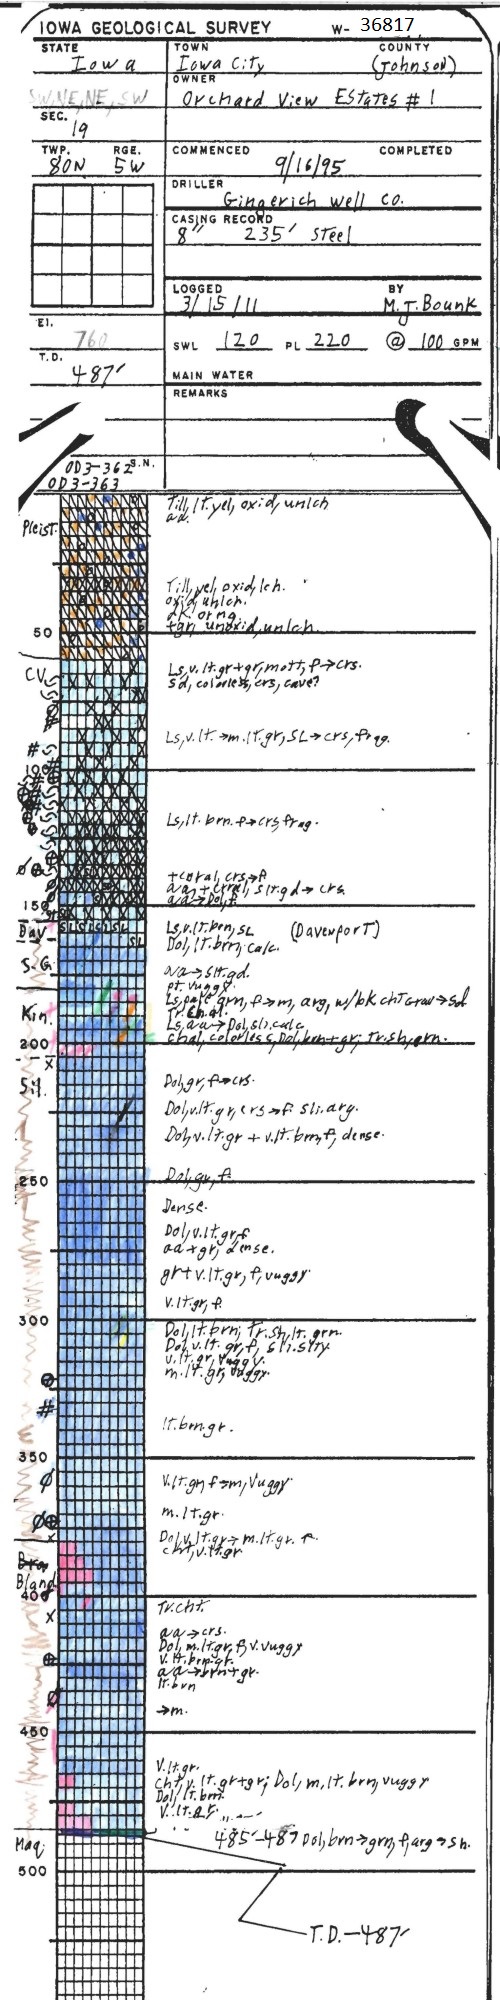 IOWA GEOLOGICAL SURVEY W- 36817
STATE TOWN COUNTY
Iowa Iowa City (Johnson)
OWNER
SW, NE, NE, SW Orchard View Estates #1
SEC.
19
TWP. RGE. COMMENCED COMPLETED
80N 5W 9/16/95
DRILLER
Gingerich Well Co.
CASING RECORD
8" 235' Steel
LOGGED BY
3/15/11 M.J. Bounk
El.
760 SWL 120 PL 220 @ 100 GPM
T.D.
487' MAIN WATER
REMARKS
OD3-362 S.N.
OD3-363
Till, lt. yel, oxid, unlch
aa.
Pleist.
Till, yel, oxid, lch.
oxid, unlch.
dk. orng.
+gr, unoxid, unlch.
50
Ls, v. lt. gr + gr, mott, f→crs.
CV
Sd, colorless, crs, cave?
Ls, v. lt. → m. lt. gr, SL → crs, frag.
100
Ls, lt. brn. f→crs, frag.
+coral, crs→f
aa + coral, slt. gd → crs
aa→Dol, f
150
Dav Ls, v. lt. brn, SL (Davenport)
SL SL SL SL SL
SL
Dol, lt. brn, calc.
S-G
aa→slt. gd.
pt. vuggy.
Ls, pale grn, f→m, arg, w/bk cht Grav→Sd
Tr. Chal.
Kin. Ls, aa→Dol, sli. calc.
chal, colorless, Dol, brn+gr; Tr. sh, grn.
200
Sil.
Dol, gr, f→crs.
Dol, v. lt. gr, crs→f. sli. arg.
Dol, v. lt. gr + v. lt. brn, f, dense.
Dol, gr, f
250
Dense.
Dol, v. lt. gr, f
aa + gr, dense.
gr + v. lt. gr, f, vuggy
v. lt. gr, f.
300
Dol, lt. brn; Tr. sh, lt. grn.
Dol, v. lt. gr, f, sli. slty.
v. lt. gr, vuggy.
m. lt. gr, vuggy.
#
lt. brn. gr.
350
v. lt. gr, f→m, vuggy
m. lt. gr.
Dol, v. lt. gr→m. lt. gr. f
cht, v. lt. gr
Bland
400
Tr. cht.
aa→crs.
Dol, m. lt. gr, f, v. vuggy
v. lt. brn. gr.
aa→brn + gr.
lt. brn
→m.
450
V. lt. gr.
cht, v. lt. gr + gr; Dol, m, lt. brn, vuggy
Dol, lt. brn.
V. lt. gr.
485'-487 Dol, brn→grn, f, arg→sh.
Maq.
500
T.D.-487'